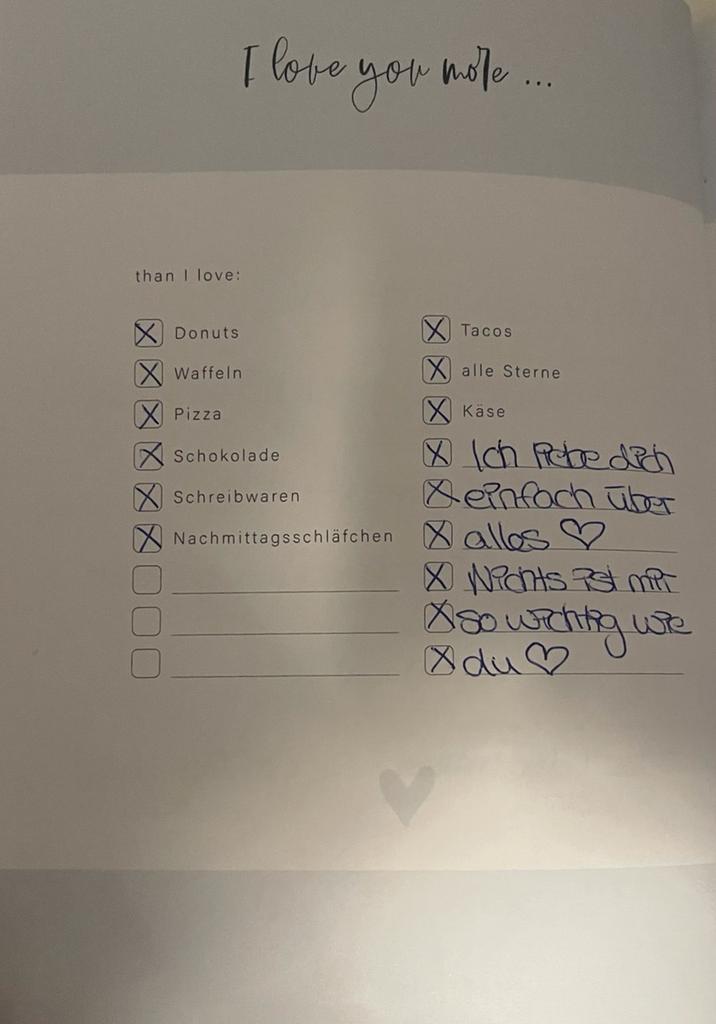 I love you more ...
than I love:
Donuts
Waffeln
Pizza
Schokolade
Schreibwaren
Nachmittagsschläfchen
Tacos
alle Sterne
Käse
Ich liebe dich
einfach über
alles ♡
Nichts ist mir
so wichtig wie
du ♡